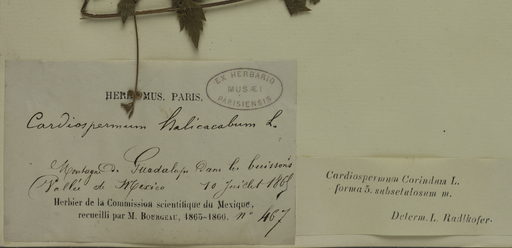 EX HERBARIO
MUSÆI
PARISIENSIS
HERB. MUS. PARIS.
Cardiospermum halicacabum L.
Montagne de Guadalupe dans les buissons
Vallée de Mexico 10 Juillet 1865
Herbier de la Commission scientifique du Mexique,
recueilli par M. BOURGEAU, 1865-1866. n° 467
Cardiospermum Corindum L.
forma 5. subsetulosum m.
Determ. L. Radlkofer.